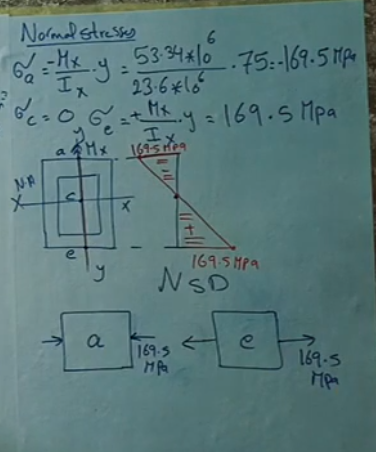 Normal stresses
σa = -Mx/Ix · y = 53.34*10^6/23.6*10^6 · 75 = -169.5 MPa
σc = 0 σe = + Mx/Ix · y = 169.5 MPa
y
a Mx 169.5 MPa
N.A
X c x
e
y 169.5 MPa
NSD
a 169.5 MPa e 169.5 MPa